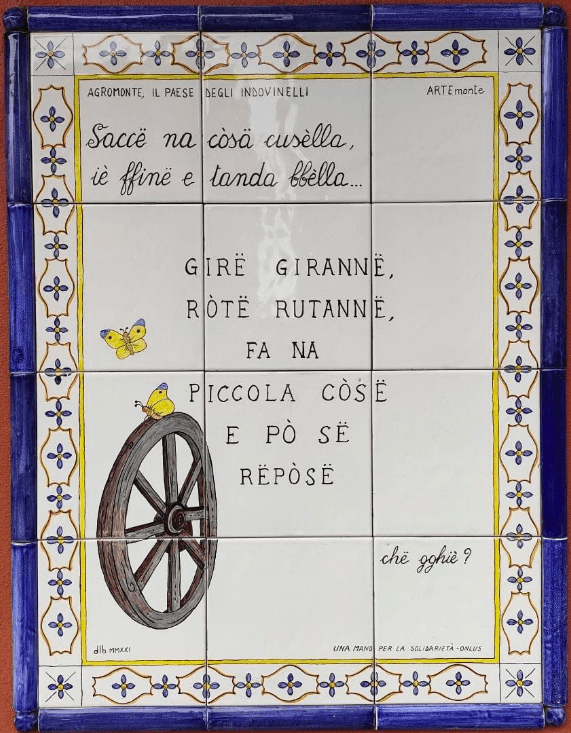 AGROMONTE, IL PAESE DEGLI INDOVINELLI
ARTEmonte
Saccë na còsä cusèlla,
iè ffinë e tanda bbèlla...
GIRË GIRANNË,
RÒTË RUTANNË,
FA NA
PICCOLA CÒSË
E PÒ SË
RËPÒSË
chë gghiè?
dlb. MMXXI
UNA MANO PER LA SOLIDARIETÀ - ONLUS